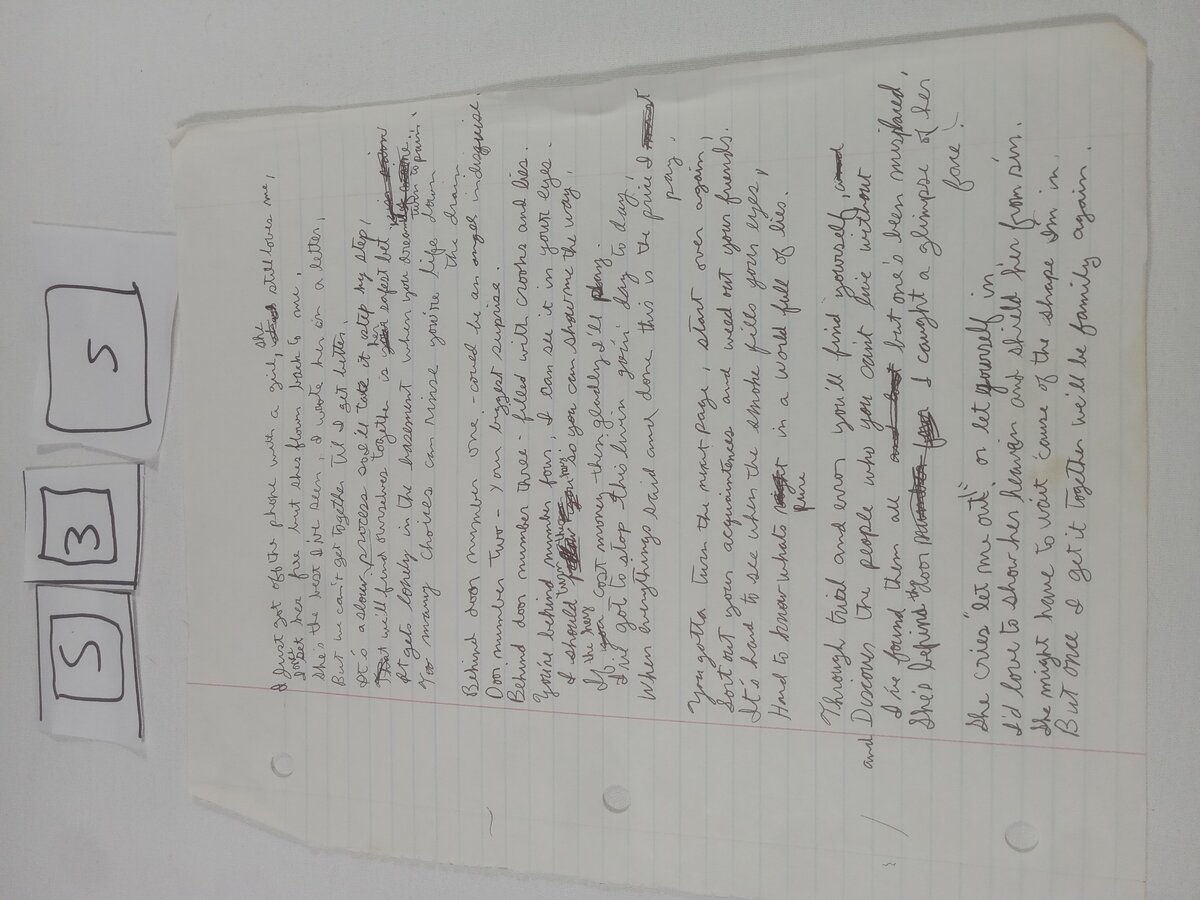 5 3 5
I Just got off the phone with a girl, she still loves me,
Set her free but shes flown back to me.
She's the best I've seen, I wrote her on a letter,
But we can't get together til I get better.
It's a slow process so I'll take it step by step,
But we'll find ourselves together is her safest bet
It gets lonely in the basement when you dream turn to pain.
Too many choices can rinse you're life down
the drain
Behind door number one - could be an angel in disguise.
Door number two - your biggest suprise.
Behind door number three - filled with crooks and lies.
You're behind number four, I can see it in your eyes.
I should so you can show me the way,
If the key cost money - then gladly I'll pay.
I've got to stop this livin goin' day to day,
When everythings said and done this is the price I
pay.
You gotta turn the next page, start over again,
Sort out your acquaintences and weed out your friends.
It's hard to see when the smoke fills your eyes,
Hard to know whats pure in a world full of lies.
Through trial and error you'll find yourself,
and Discover the people who you caint live without
I've found them all but one's been misplaced,
She's by the door I caught a glimpse of her
face!
She cries "let me out" or let yourself in
I'd love to show her heavin and shield her from sin.
She might have to wait 'cause of the shape Im in.
But once I get it together we'll be family again.